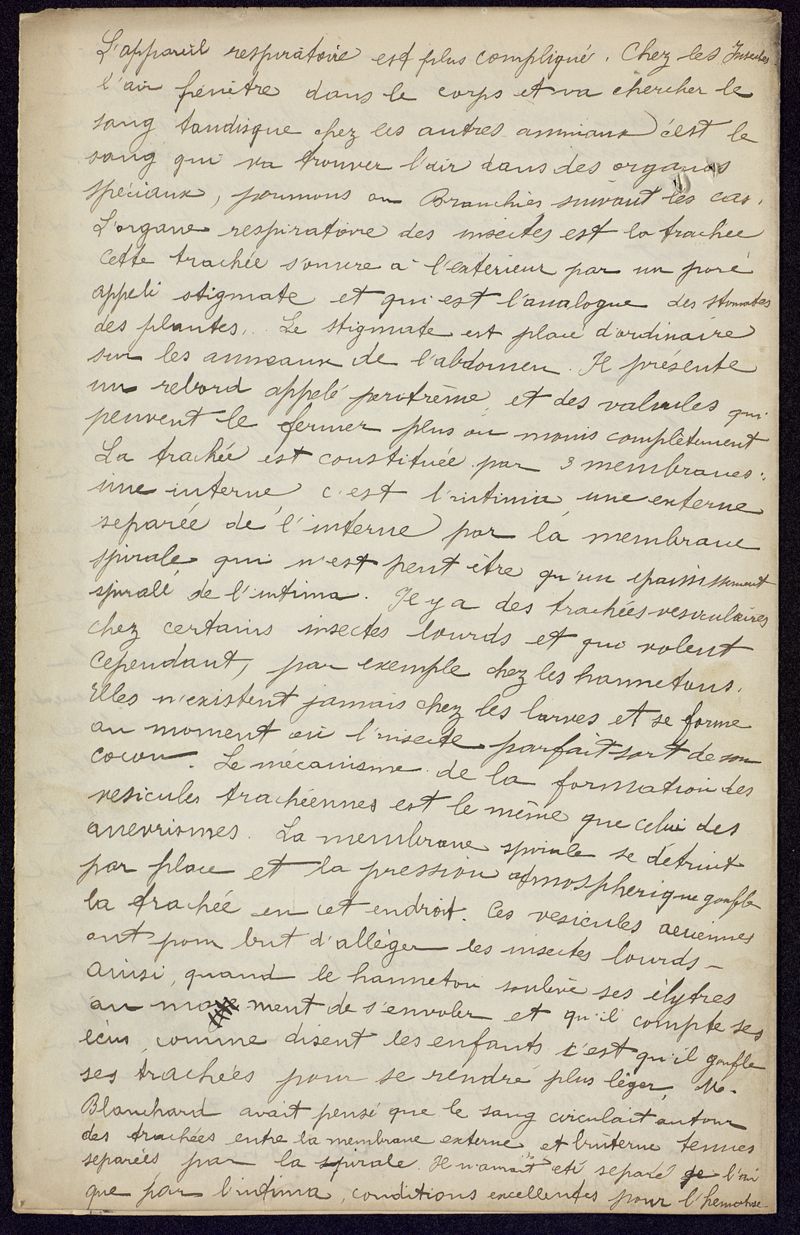 L'appareil respiratoire est plus compliqué. Chez les Insectes
l'air pénètre dans le corps et va chercher le
sang tandisque chez les autres animaux c'est le
sang qui va trouver l'air dans des organes
spéciaux, poumons ou Branchies suivant les cas.
L'organe respiratoire des insectes est la trachée
cette trachée s'ouvre à l'extérieur par un pore
appelé stigmate et qui est l'analogue des stomates
des plantes. Le stigmate est placé d'ordinaire
sur les anneaux de l'abdomen. Il présente
un rebord appelé peritrème et des valvules qui
peuvent le fermer plus ou moins complètement
La trachée est constituée par 3 membranes :
une interne c'est l'intima une externe
separée de l'interne par la membrane
spirale qui n'est peut être qu'un épaississement
spiralé de l'intima. Il y a des trachées vesiculaires
chez certains insectes lourds et qui volent
cependant, par exemple chez les hannetons.
Elles n'existent jamais chez les larves et se forme
au moment où l'insecte parfait sort de son
cocon. Le mécanisme de la formation des
vesicules trachéennes est le même que celui des
anevrismes. La membrane spirale se détruit
par place et la pression atmosphérique gonfle
la trachée en cet endroit. Ces vesicules aeriennes
ont pour but d'alléger les insectes lourds -
ainsi, quand le hanneton soulève ses élytres
au moment de s'envoler et qu'il compte ses
écus comme disent les enfants c'est qu'il gonfle
ses trachées pour se rendre plus léger. Mr
Blanchard avait pensé que le sang circulait autour
des trachées entre la membrane externe et l'interne tenues
separées par la spirale. Il n'aurait été separé de l'air
que par l'intima, conditions excellentes pour l'hematose